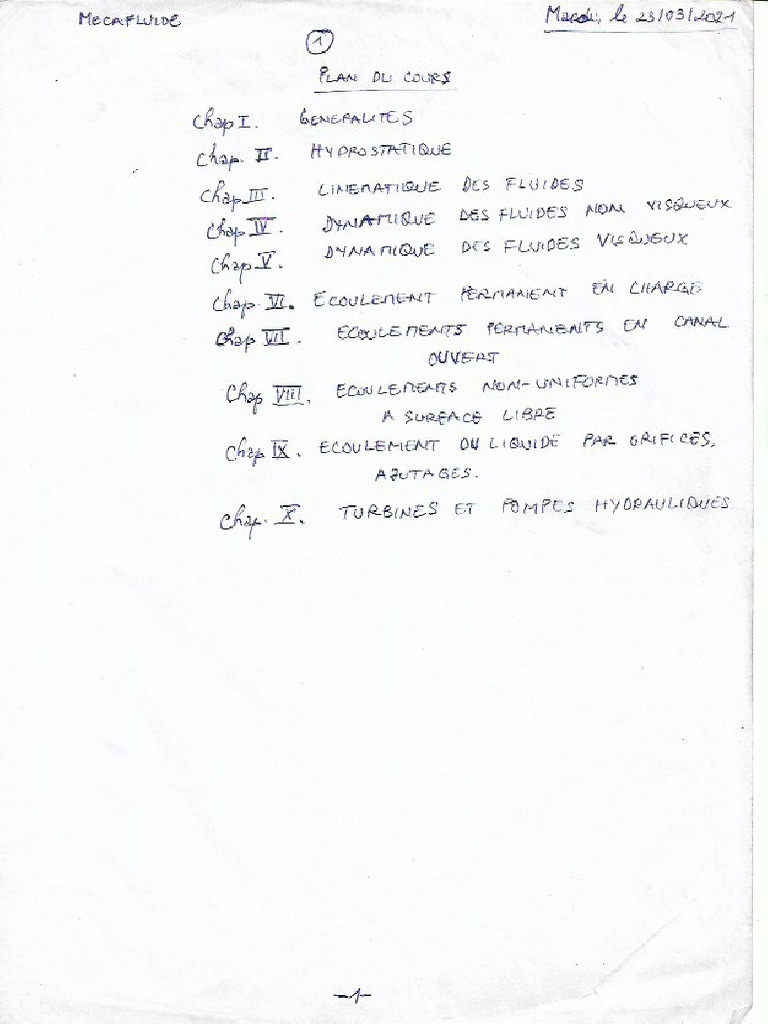 MECAFLUIDE
Mardi, le 23/03/2021
1
PLAN DU COURS
Chap I. GENERALITES
Chap. II. HYDROSTATIQUE
Chap III. CINEMATIQUE DES FLUIDES
Chap IV. DYNAMIQUE DES FLUIDES NON VISQUEUX
Chap V. DYNAMIQUE DES FLUIDES VISQUEUX
Chap VI. ECOULEMENT PERMANENT EN CHARGE
Chap VII. ECOULEMENTS PERMANENTS EN CANAL
OUVERT
Chap VIII. ECOULEMENTS NON-UNIFORMES
A SURFACE LIBRE
Chap IX. ECOULEMENT DU LIQUIDE PAR ORIFICES,
AJUTAGES.
Chap. X. TURBINES ET POMPES HYDRAULIQUES
-1-